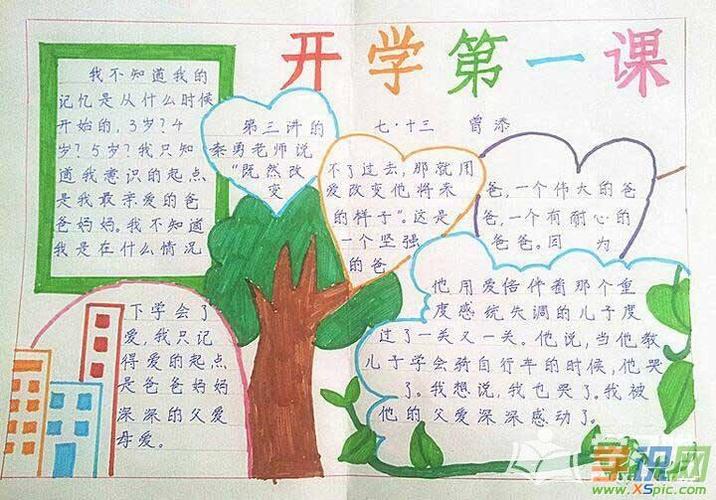 开学第一课
七·十三 曾添
我不知道我的
记忆是从什么时候
开始的,3岁?4
岁?5岁?我只知
道我意识的起点
是我最亲爱的爸
爸妈妈。我不知道
我是在什么情况
下学会了
爱,我只记
得爱的起点
是爸爸妈妈
深深的父爱
母爱。
第三讲的
秦勇老师说
“既然改
变
不了过去,那就用
爱改变他将来
的样子”。这是
一个坚强
的爸
爸,一个伟大的爸
爸,一个有耐心的
爸爸。因为
他用爱陪伴着那个重
度感统失调的儿子度
过了一关又一关。他说,当他教
儿子学会骑自行车的时候,他哭
了。我想说,我也哭了。我被
他的父爱深深感动了。
学识网
www.XSpic.com